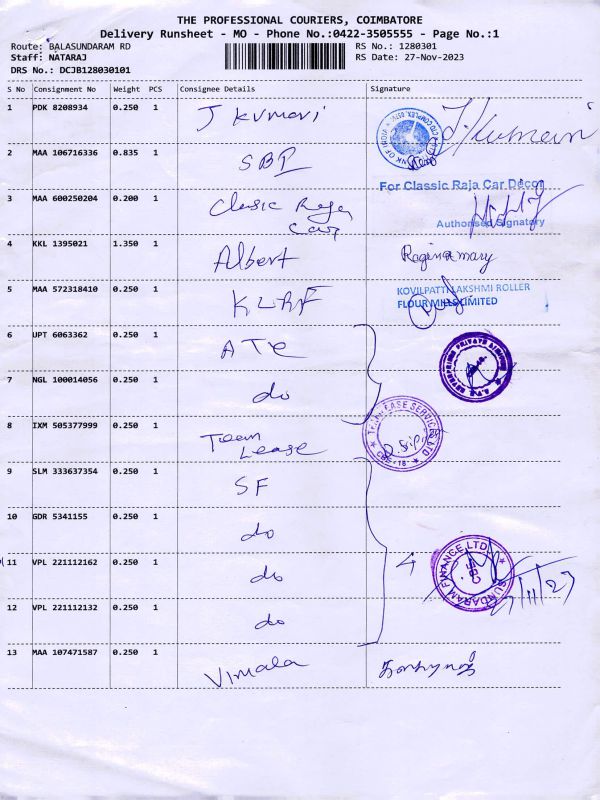 THE PROFESSIONAL COURIERS, COIMBATORE
Delivery Runsheet - MO - Phone No.:0422-3505555 - Page No.:1
Route: BALASUNDARAM RD
RS No.: 1280301
Staff: NATARAJ
RS Date: 27-Nov-2023
DRS No.: DCJB128030101
S No Consignment No Weight PCS Consignee Details Signature
1 PDK 8208934 0.250 1 J Kumari J. Kumari
2 MAA 106716336 0.835 1 SBI
For Classic Raja Car Décor
3 MAA 600250204 0.200 1 Classic Raja
Car
Authorised Signatory
4 KKL 1395021 1.350 1 Albert Regina mary
5 MAA 572318410 0.250 1 KLRF KOVILPATTI LAKSHMI ROLLER
FLOUR MILLS LIMITED
6 UPT 6063362 0.250 1 ATE
7 NGL 100014056 0.250 1 do
8 IXM 505377999 0.250 1 Team
Lease
TEAMLEASE SERVICES LTD
9 SLM 333637354 0.250 1 SF
10 GDR 5341155 0.250 1 do
11 VPL 221112162 0.250 1 do 4
SUNDARAM FINANCE LTD.
27/11/23
12 VPL 221112132 0.250 1 do
13 MAA 107471587 0.250 1 Vimala